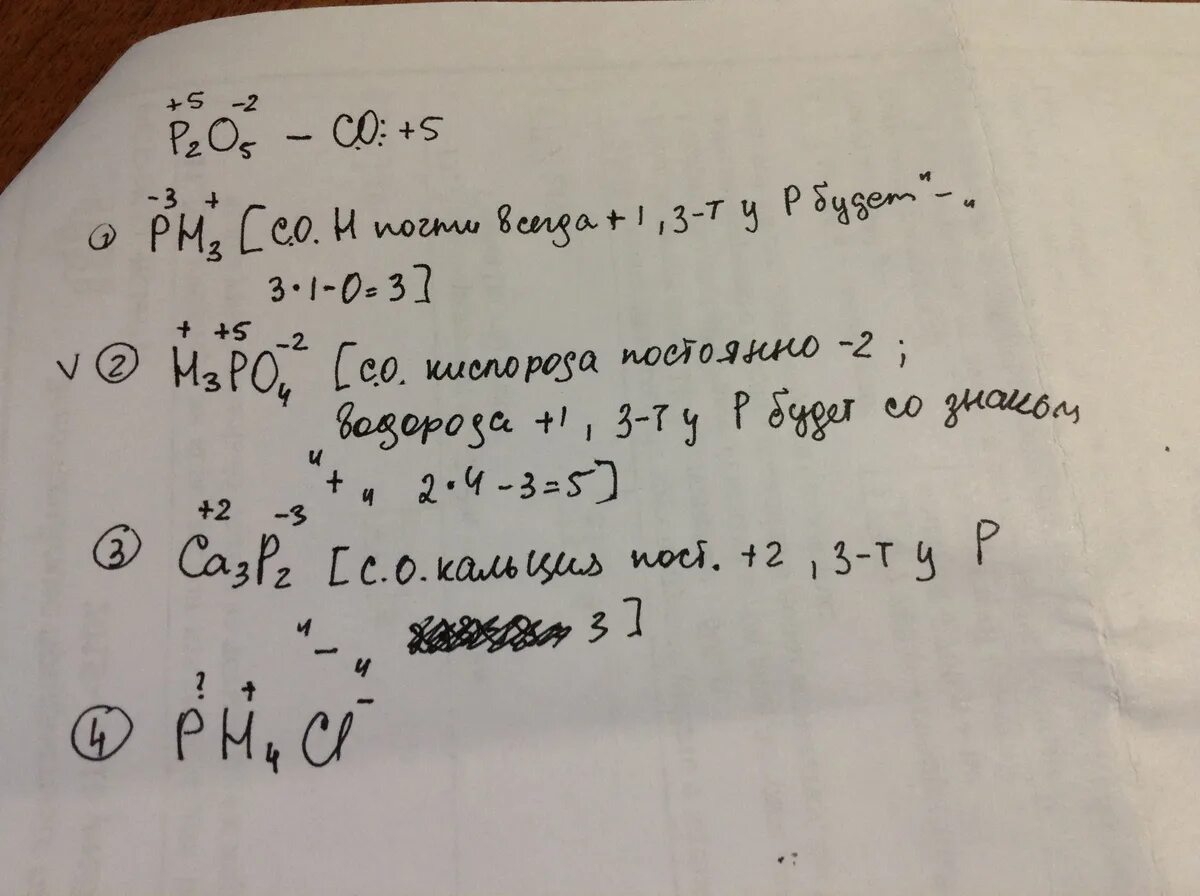 +5 -2
P₂O₅ – С.О.: +5
-3 +
1) PH₃ [С.О. H почти всегда +1, з-т у P будет "-"
3·1-0=3]
+ +5 -2
V ② H₃PO₄ [С.О. кислорода постоянно -2 ;
водорода +1, з-т у P будет со знаком
"+" 2·4-3=5]
+2 -3
③ Ca₃P₂ [С.О. кальция пост. +2, з-т у P
"-" 3]
? + -
④ PH₄Cl